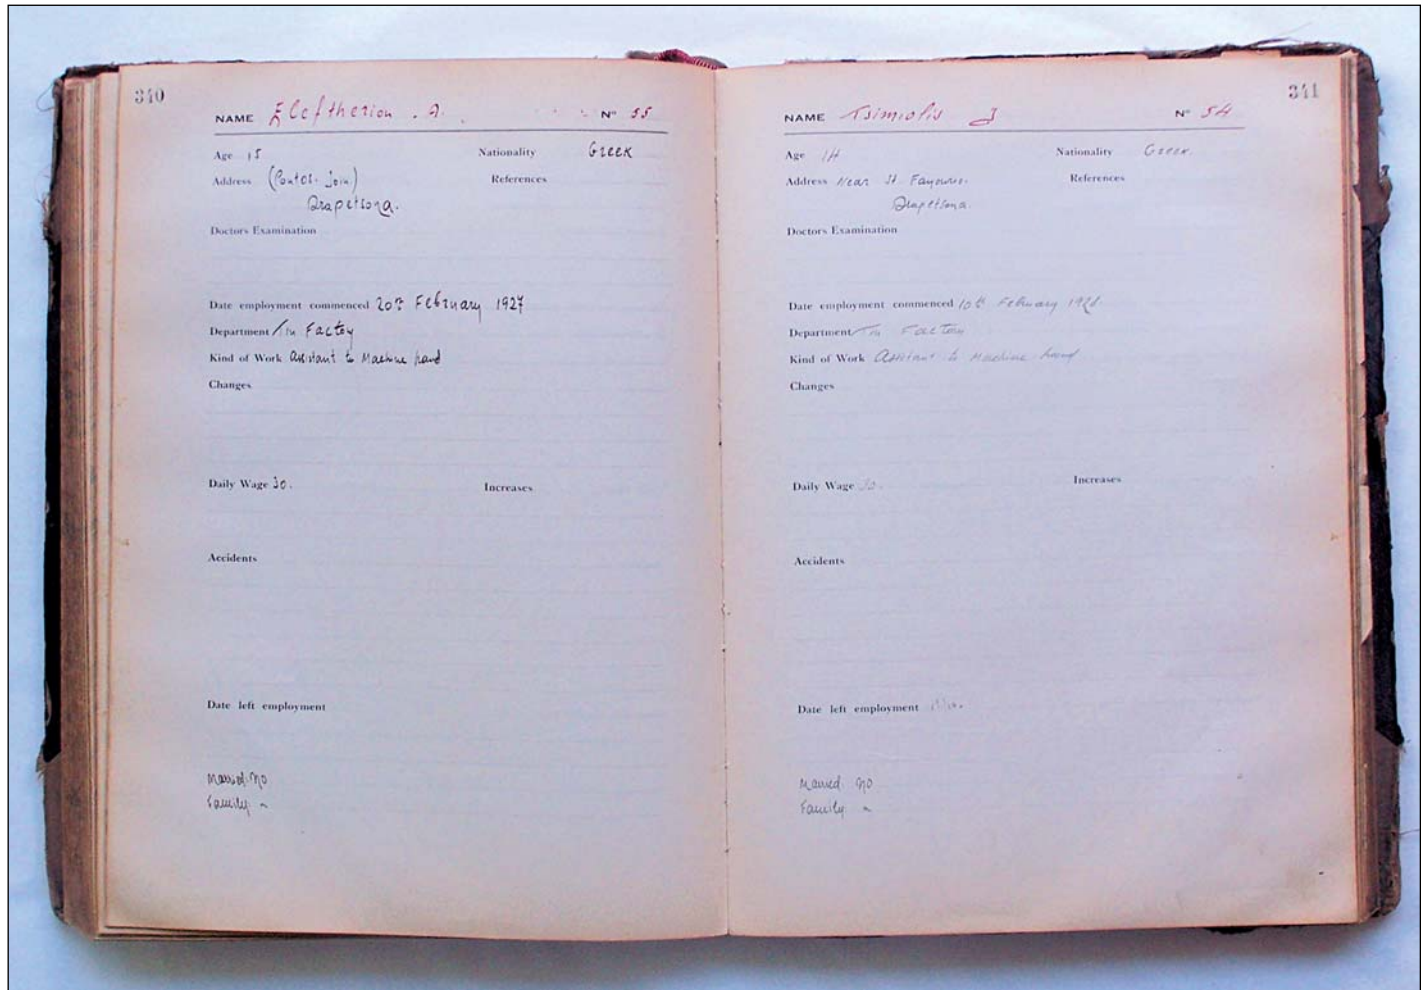 340
NAME Eleftheriou . A. Nº 55
Age 15 Nationality Greek
Address (Pontos. Join) References
Drapetsona.
Doctors Examination
Date employment commenced 20th February 1927
Department Tin Factory
Kind of Work Assistant to Machine hand
Changes
Daily Wage 30. Increases
Accidents
Date left employment
Married. no
Family. ~
341
NAME Tsimiolis J Nº 54
Age 14 Nationality Greek.
Address Near St. References
Drapetsona.
Doctors Examination
Date employment commenced 10th February 1928
Department Tin Factory
Kind of Work Assistant to Machine hand
Changes
Daily Wage 30. Increases
Accidents
Date left employment
Married. no
Family. ~